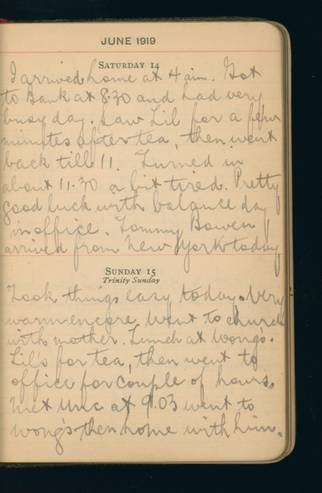 JUNE 1919
SATURDAY 14
I arrived home at 4 a.m. Got
to Bank at 8.30 and had very
busy day. Saw Lil for a few
minutes after tea, then went
back till 11. Turned in
about 11.30 a bit tired. Pretty
good luck with balance day
in office. Tommy Bowen
arrived from New York today
SUNDAY 15
Trinity Sunday
Took things easy today. Very
warm encore. Went to church
with mother. Lunch at Wong's.
Lil's for tea, then went to
office for couple of hours.
Met Unc at 9.03 went to
Wong's then home with him.